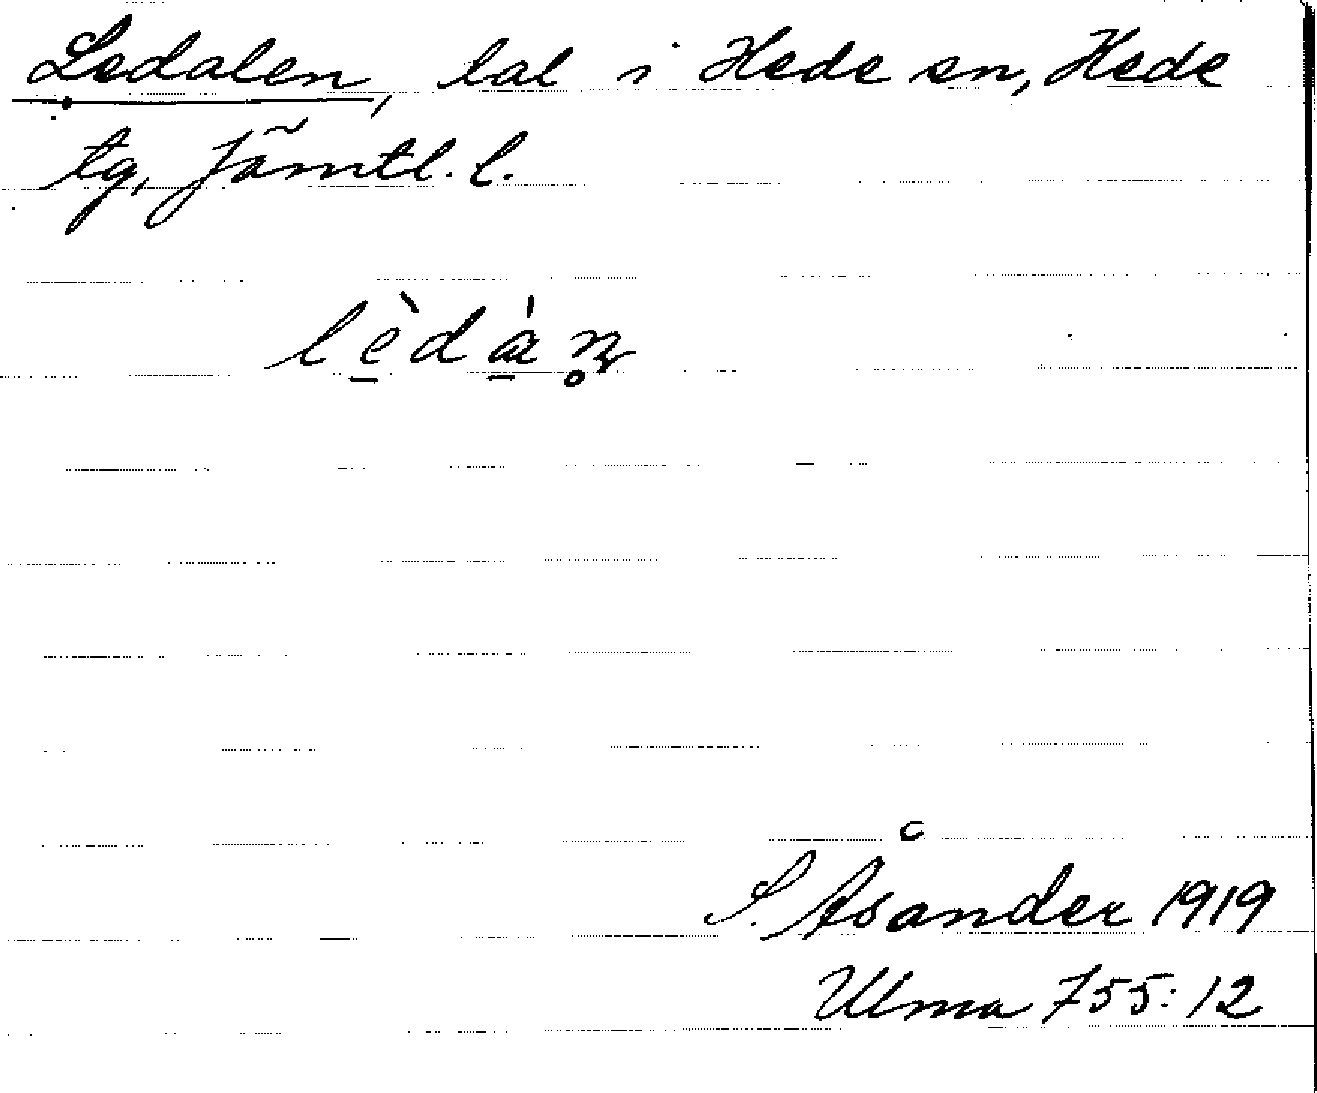 Ledalen, lal i Hede sn, Hede
tg, Jämtl. l.
lèdáṇ
S. Åsander 1919
Ulma 755:12